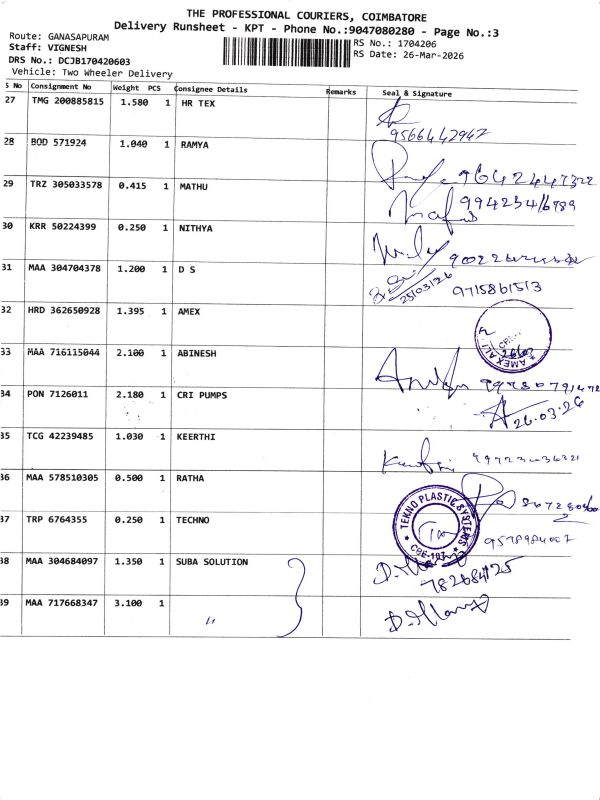 THE PROFESSIONAL COURIERS, COIMBATORE
Delivery Runsheet - KPT - Phone No.:9047080280 - Page No.:3
Route: GANASAPURAM
RS No.: 1704206
Staff: VIGNESH
RS Date: 26-Mar-2026
DRS No.: DCJB170420603
Vehicle: Two Wheeler Delivery
S No Consignment No Weight PCS Consignee Details Remarks Seal & Signature
27 TMG 200885815 1.580 1 HR TEX
9566442947
28 BOD 571924 1.040 1 RAMYA
29 TRZ 305033578 0.415 1 MATHU
30 KRR 50224399 0.250 1 NITHYA
31 MAA 304704378 1.200 1 D S
25/03/26
9715861513
32 HRD 362650928 1.395 1 AMEX
33 MAA 716115044 2.100 1 ABINESH
34 PON 7126011 2.180 1 CRI PUMPS
26.03.26
35 TCG 42239485 1.030 1 KEERTHI
36 MAA 578510305 0.500 1 RATHA
37 TRP 6764355 0.250 1 TECHNO
TEKNO PLASTIC SYSTEMS
38 MAA 304684097 1.350 1 SUBA SOLUTION
39 MAA 717668347 3.100 1 "